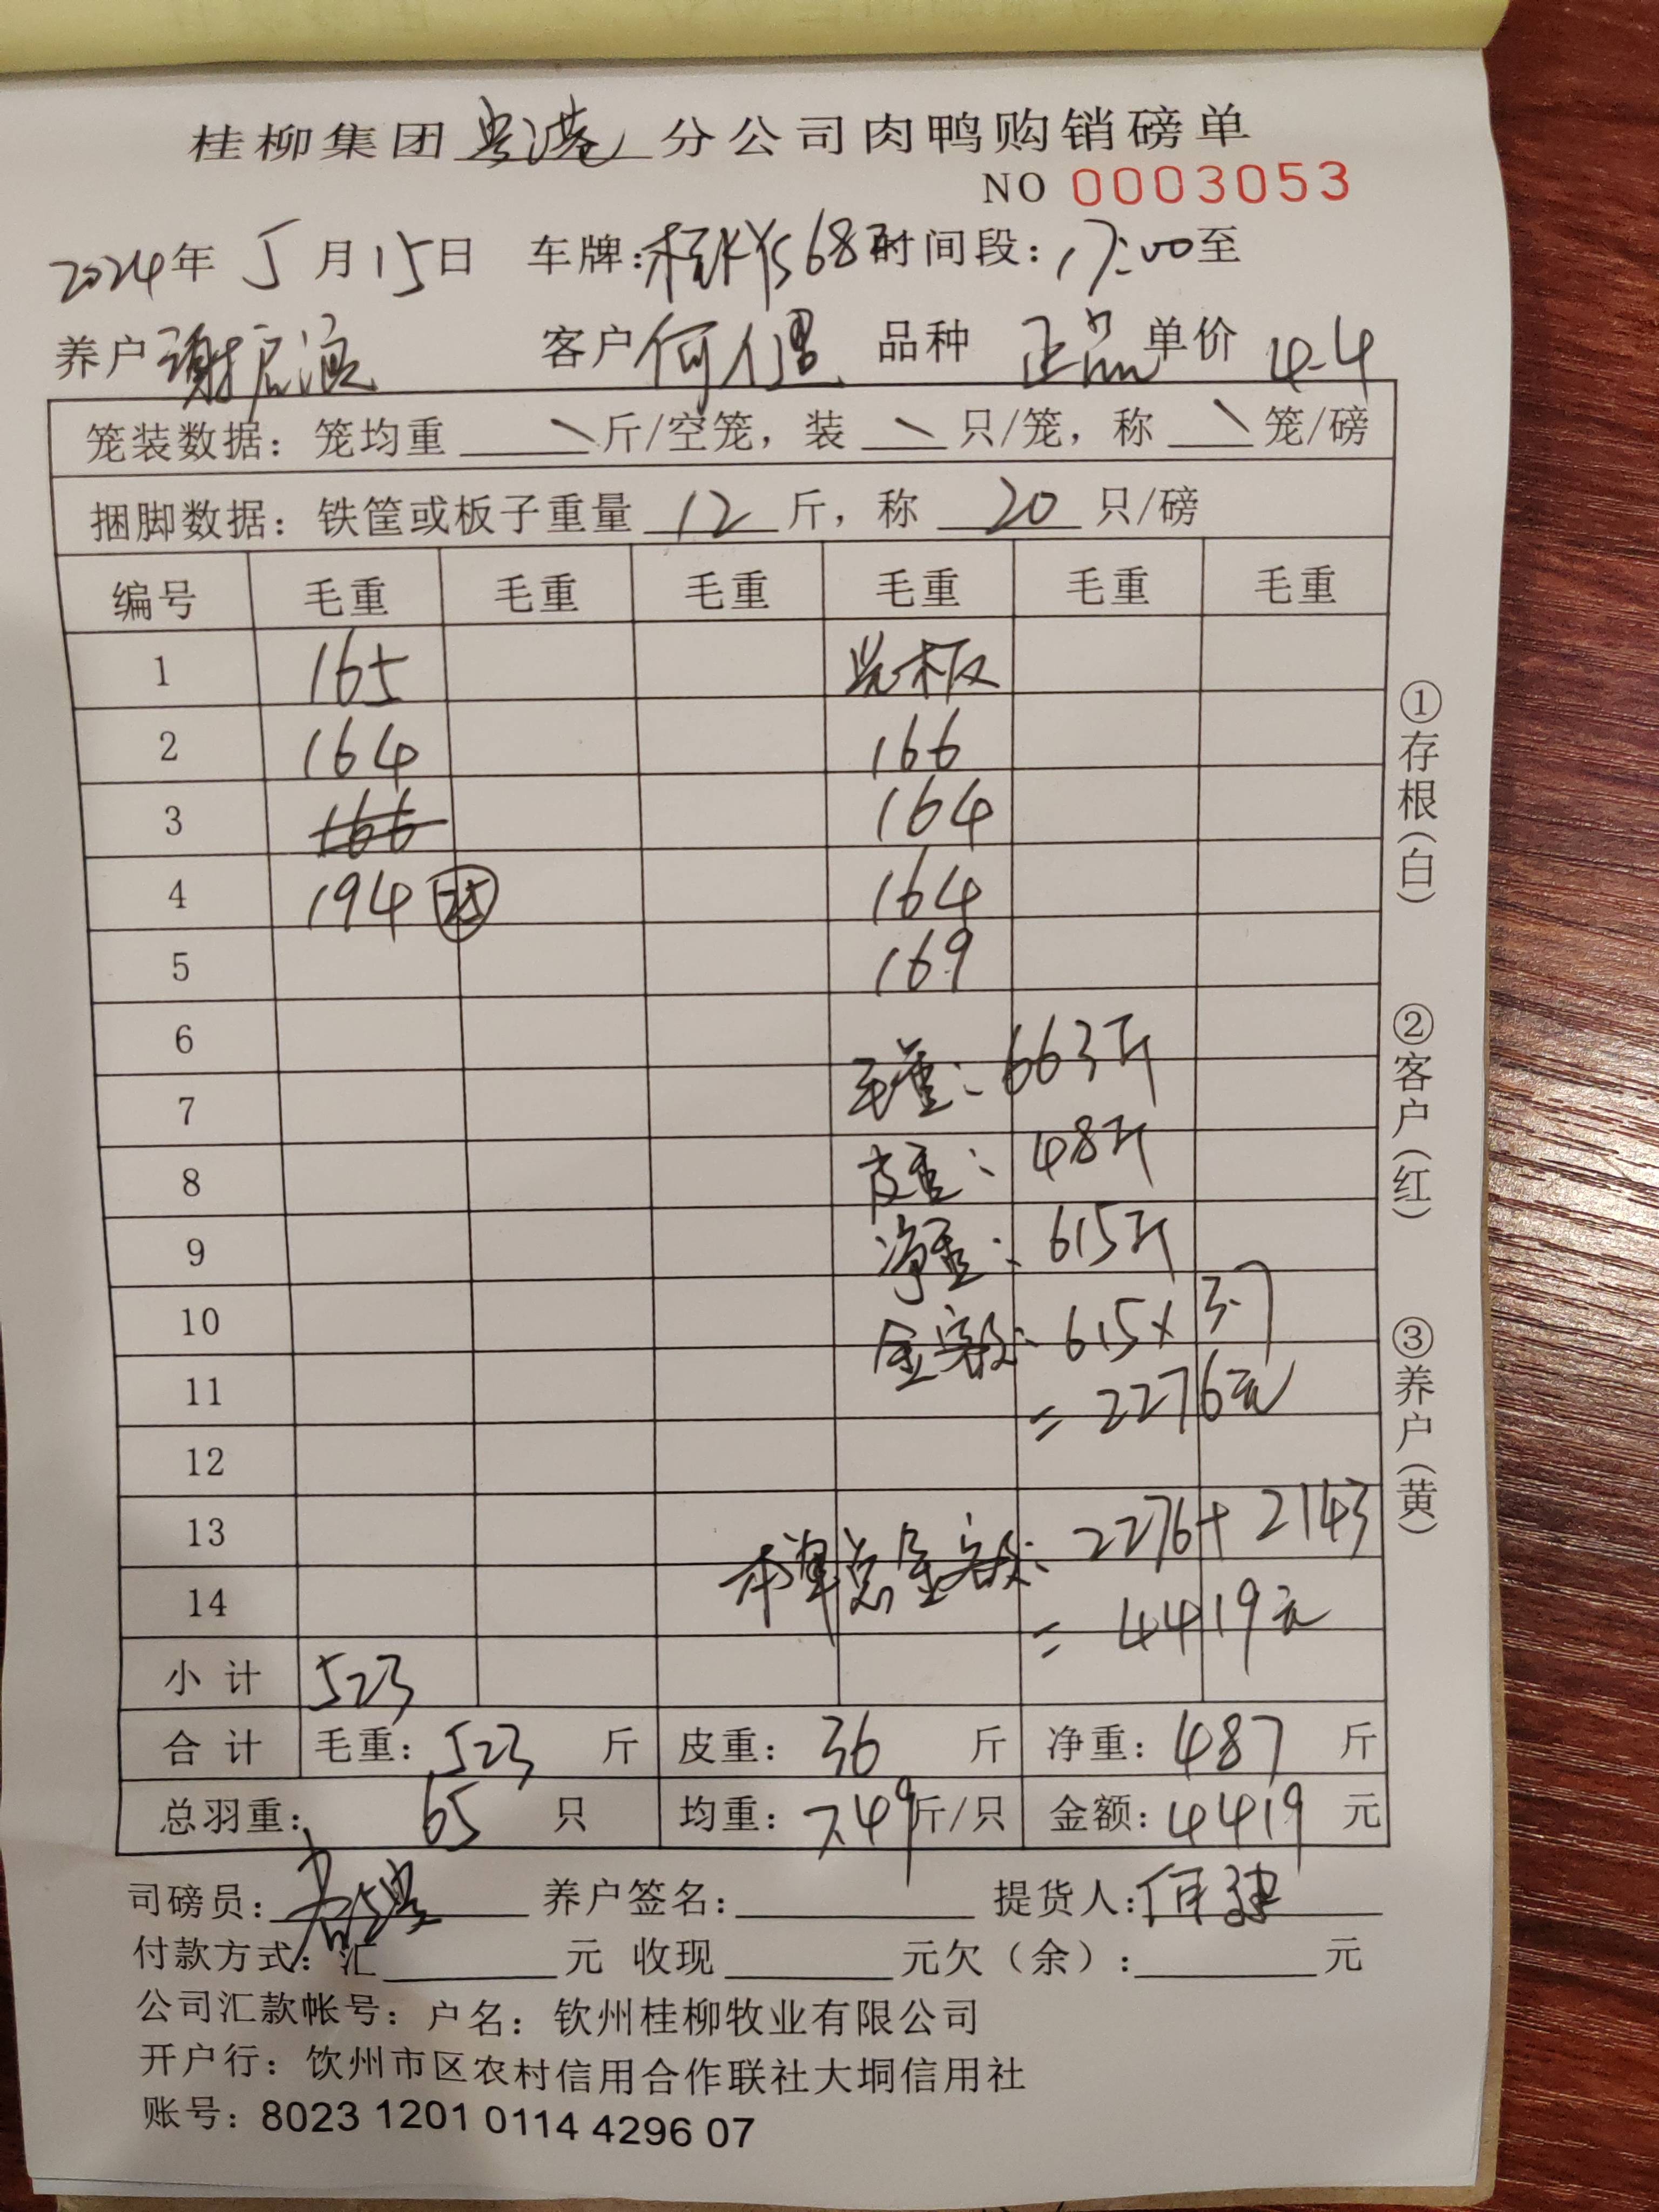 桂柳集团 贵港 分公司肉鸭购销磅单
NO 0003053
2024年 5 月 15 日 车牌: 时间段: 17:00 至
养户 谢 客户 何 品种 正品 单价 4.4
笼装数据: 笼均重 \ 斤/空笼, 装 \ 只/笼, 称 \ 笼/磅
捆脚数据: 铁筐或板子重量 12 斤, 称 20 只/磅
编号 毛重 毛重 毛重 毛重 毛重 毛重
1 165 光板
2 164 166
3 166 164
4 194 25 164
5 169
6 毛重: 663斤
7
8 皮重: 48斤
9 净重: 615斤
10 金额: 615×3.7
11 =2276元
12
13 本单总金额: 2276+2143
14 =4419元
小计 523
合计 毛重: 523 斤 皮重: 36 斤 净重: 487 斤
总羽重: 65 只 均重: 7.49 斤/只 金额: 4419 元
司磅员: 养户签名: 提货人: 何建
付款方式: 汇 元 收现 元欠(余): 元
公司汇款帐号: 户名: 钦州桂柳牧业有限公司
开户行: 钦州市区农村信用合作联社大垌信用社
账号: 8023 1201 0114 4296 07
①存根(白)
②客户(红)
③养户(黄)